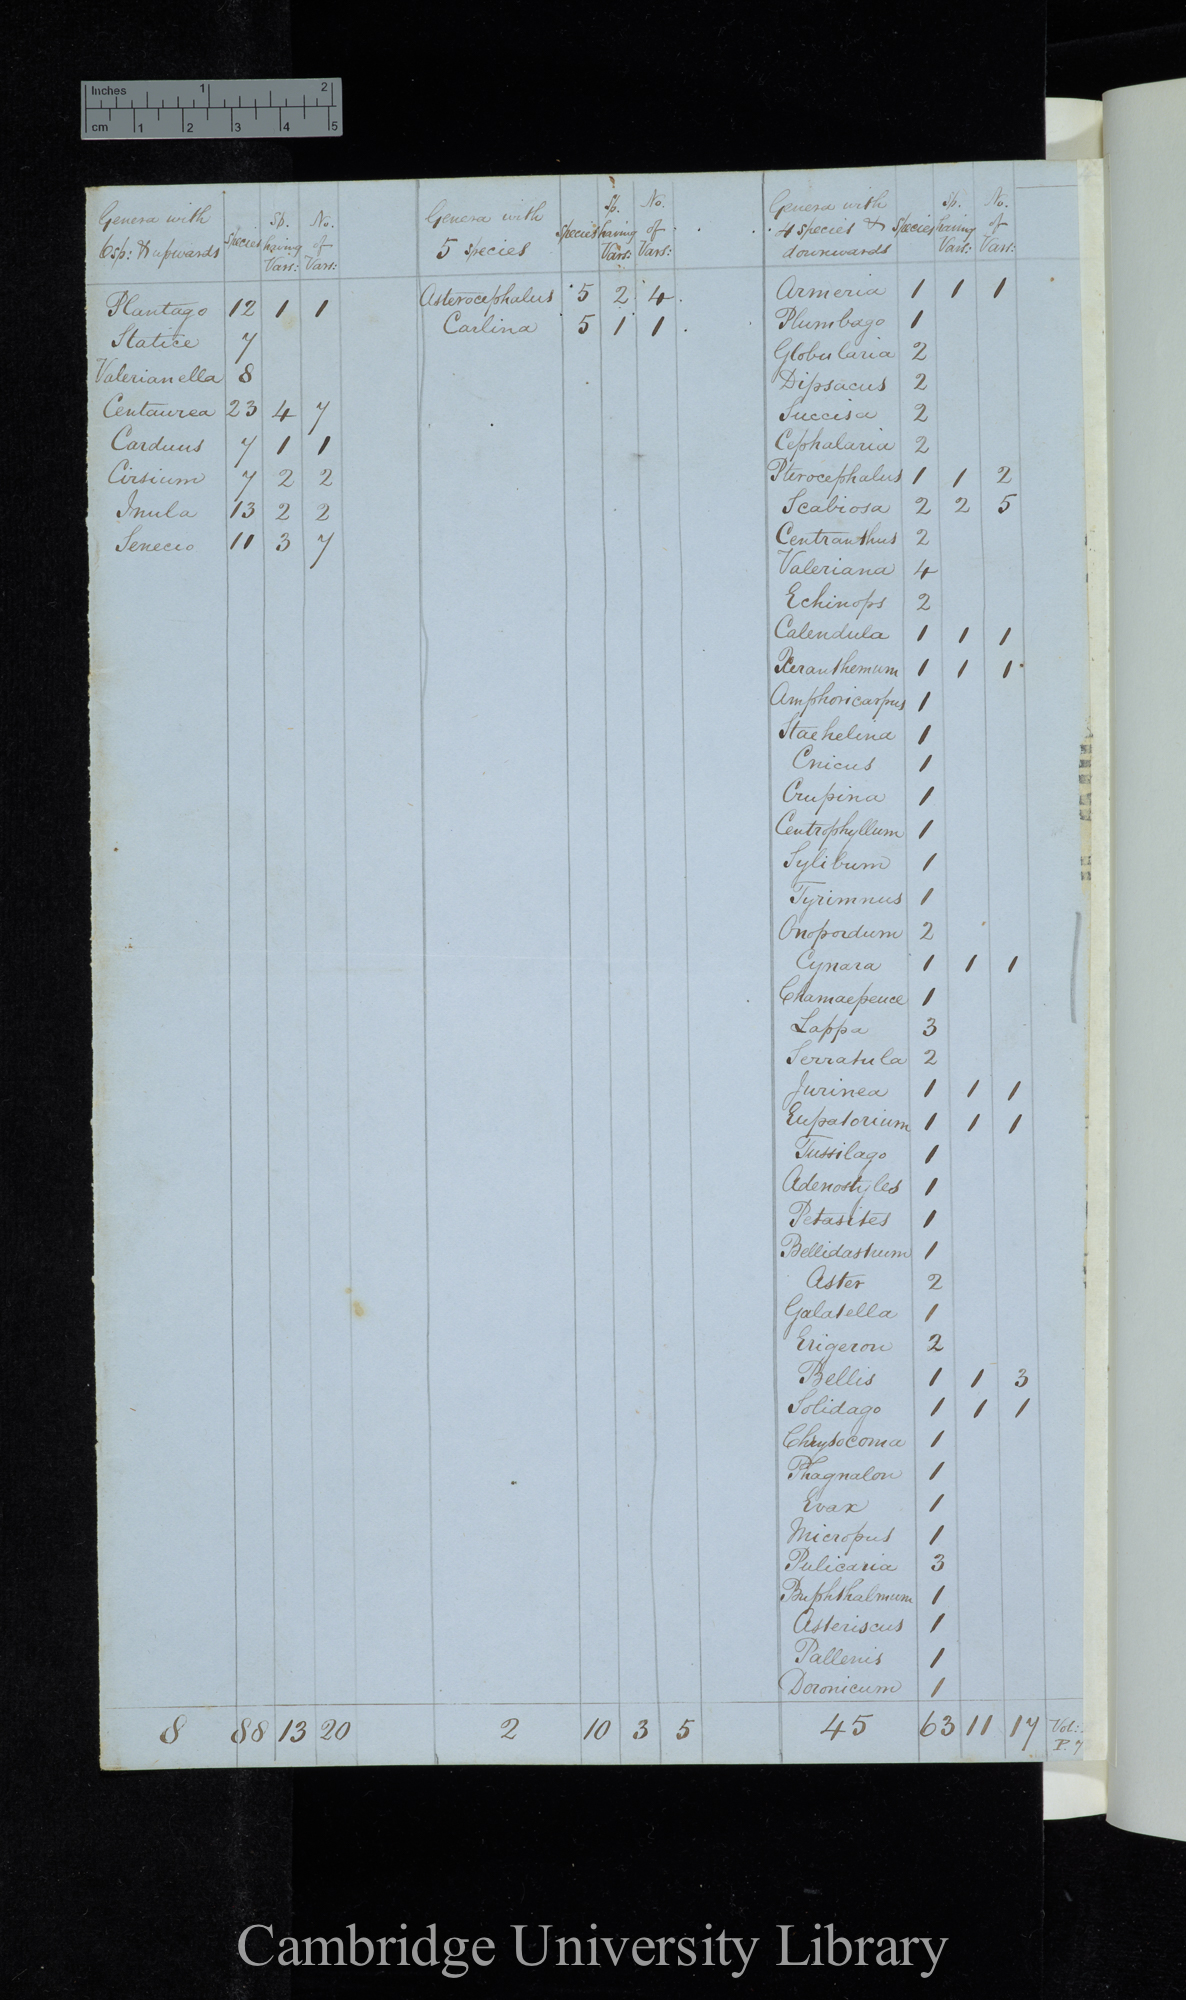 Inches 1 2
cm 1 2 3 4 5
Genera with 6 sp: & upwards | Species | Sp. having Vars: | No. of Vars:
Plantago 12 1 1
Statice 7
Valerianella 8
Centaurea 23 4 7
Carduus 7 1 1
Cirsium 7 2 2
Inula 13 2 2
Senecio 11 3 7
8 88 13 20
Genera with 5 species | Species | Sp. having Vars: | No. of Vars:
Asterocephalus 5 2 4
Carlina 5 1 1
2 10 3 5
Genera with 4 species & downwards | Species | Sp. having Vars: | No. of Vars:
Armeria 1 1 1
Plumbago 1
Globularia 2
Dipsacus 2
Succisa 2
Cephalaria 2
Pterocephalus 1 1 2
Scabiosa 2 2 5
Centranthus 2
Valeriana 4
Echinops 2
Calendula 1 1 1
Xeranthemum 1 1 1
Amphoricarpus 1
Staehelina 1
Cnicus 1
Crupina 1
Centrophyllum 1
Sylibum 1
Tyrimnus 1
Onopordum 2
Cynara 1 1 1
Chamaepeuce 1
Lappa 3
Serratula 2
Jurinea 1 1 1
Eupatorium 1 1 1
Tussilago 1
Adenostyles 1
Petasites 1
Bellidastrum 1
Aster 2
Galatella 1
Erigeron 2
Bellis 1 1 3
Solidago 1 1 1
Chrysocoma 1
Phagnalon 1
Evax 1
Micropus 1
Pulicaria 3
Buphthalmum 1
Asteriscus 1
Pallenis 1
Doronicum 1
45 63 11 17
Vol:
P. 7
Cambridge University Library